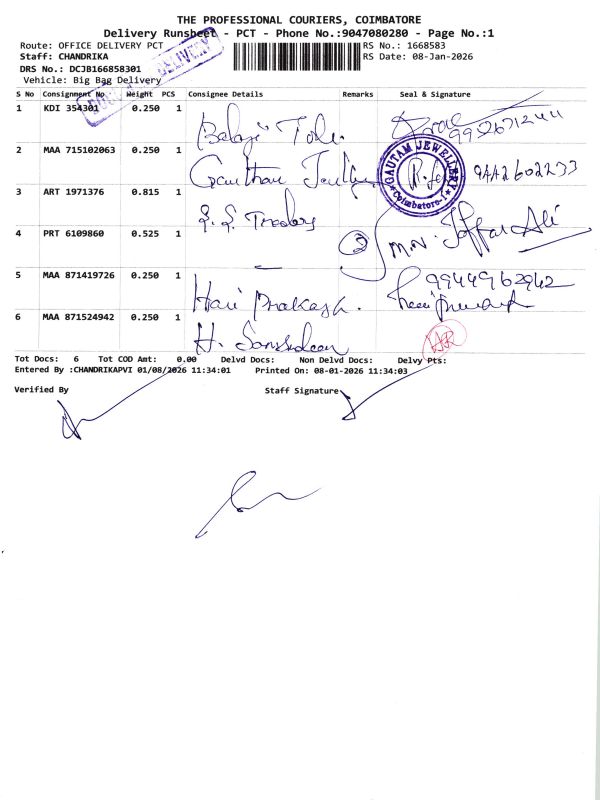 THE PROFESSIONAL COURIERS, COIMBATORE
Delivery Runsheet - PCT - Phone No.:9047080280 - Page No.:1
Route: OFFICE DELIVERY PCT
RS No.: 1668583
Staff: CHANDRIKA
RS Date: 08-Jan-2026
DRS No.: DCJB166858301
Vehicle: Big Bag Delivery
DELIVERY
S No Consignment No Weight PCS Consignee Details Remarks Seal & Signature
1 KDI 354301 0.250 1 Balaji
2 MAA 715102063 0.250 1 Gautham
GAUTAM JEWELLERY
Coimbatore-1
3 ART 1971376 0.815 1 S.S. Traders
4 PRT 6109860 0.525 1 — M.N. Jaffar Ali
9944962942
5 MAA 871419726 0.250 1 Hari Prakash.
6 MAA 871524942 0.250 1 H.
Tot Docs: 6 Tot COD Amt: 0.00 Delvd Docs: Non Delvd Docs: Delvy Pts:
Entered By :CHANDRIKAPVI 01/08/2026 11:34:01 Printed On: 08-01-2026 11:34:03
Verified By Staff Signature